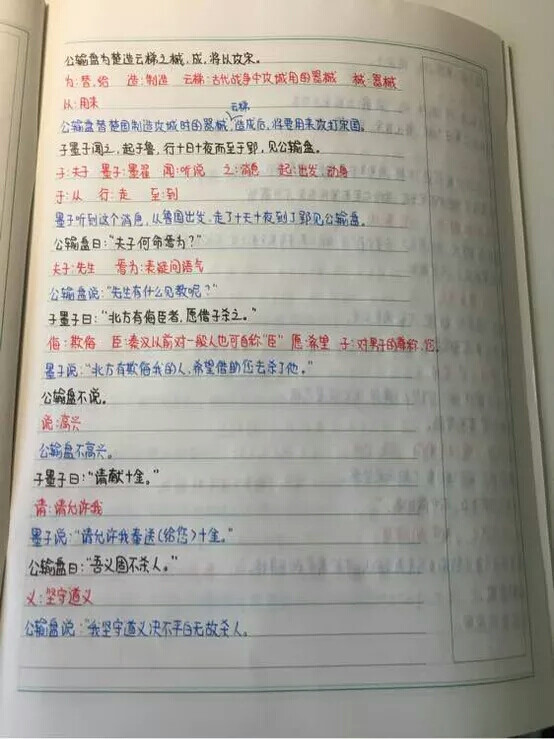 公输盘为楚造云梯之械，成，将以攻宋。
为:替，给 造:制造 云梯:古代战争中攻城用的器械 械:器械
以:用来
云梯
公输盘替楚国制造攻城时的器械，造成后，将要用来攻打宋国。
子墨子闻之，起于鲁，行十日十夜而至于郢，见公输盘。
子:夫子 墨子:墨翟 闻:听说 之:消息 起:出发，动身
于:从 行:走 至:到
墨子听到这个消息，从鲁国出发，走了十天十夜到了郢见公输盘。
公输盘曰:“夫子何命焉为？”
夫子:先生 焉为:表疑问语气
公输盘说:“先生有什么见教呢？”
子墨子曰:“北方有侮臣者，愿借子杀之。”
侮:欺侮 臣:秦汉以前对一般人也可自称“臣” 愿:希望 子:对男子的尊称，您
墨子说:“北方有欺侮我的人，希望借助您去杀了他。”
公输盘不说。
说:高兴
公输盘不高兴。
子墨子曰:“请献十金。”
请:请允许我
墨子说:“请允许我奉送(给您)十金。”
公输盘曰:“吾义固不杀人。”
义:坚守道义
公输盘说:“我坚守道义决不平白无故杀人。